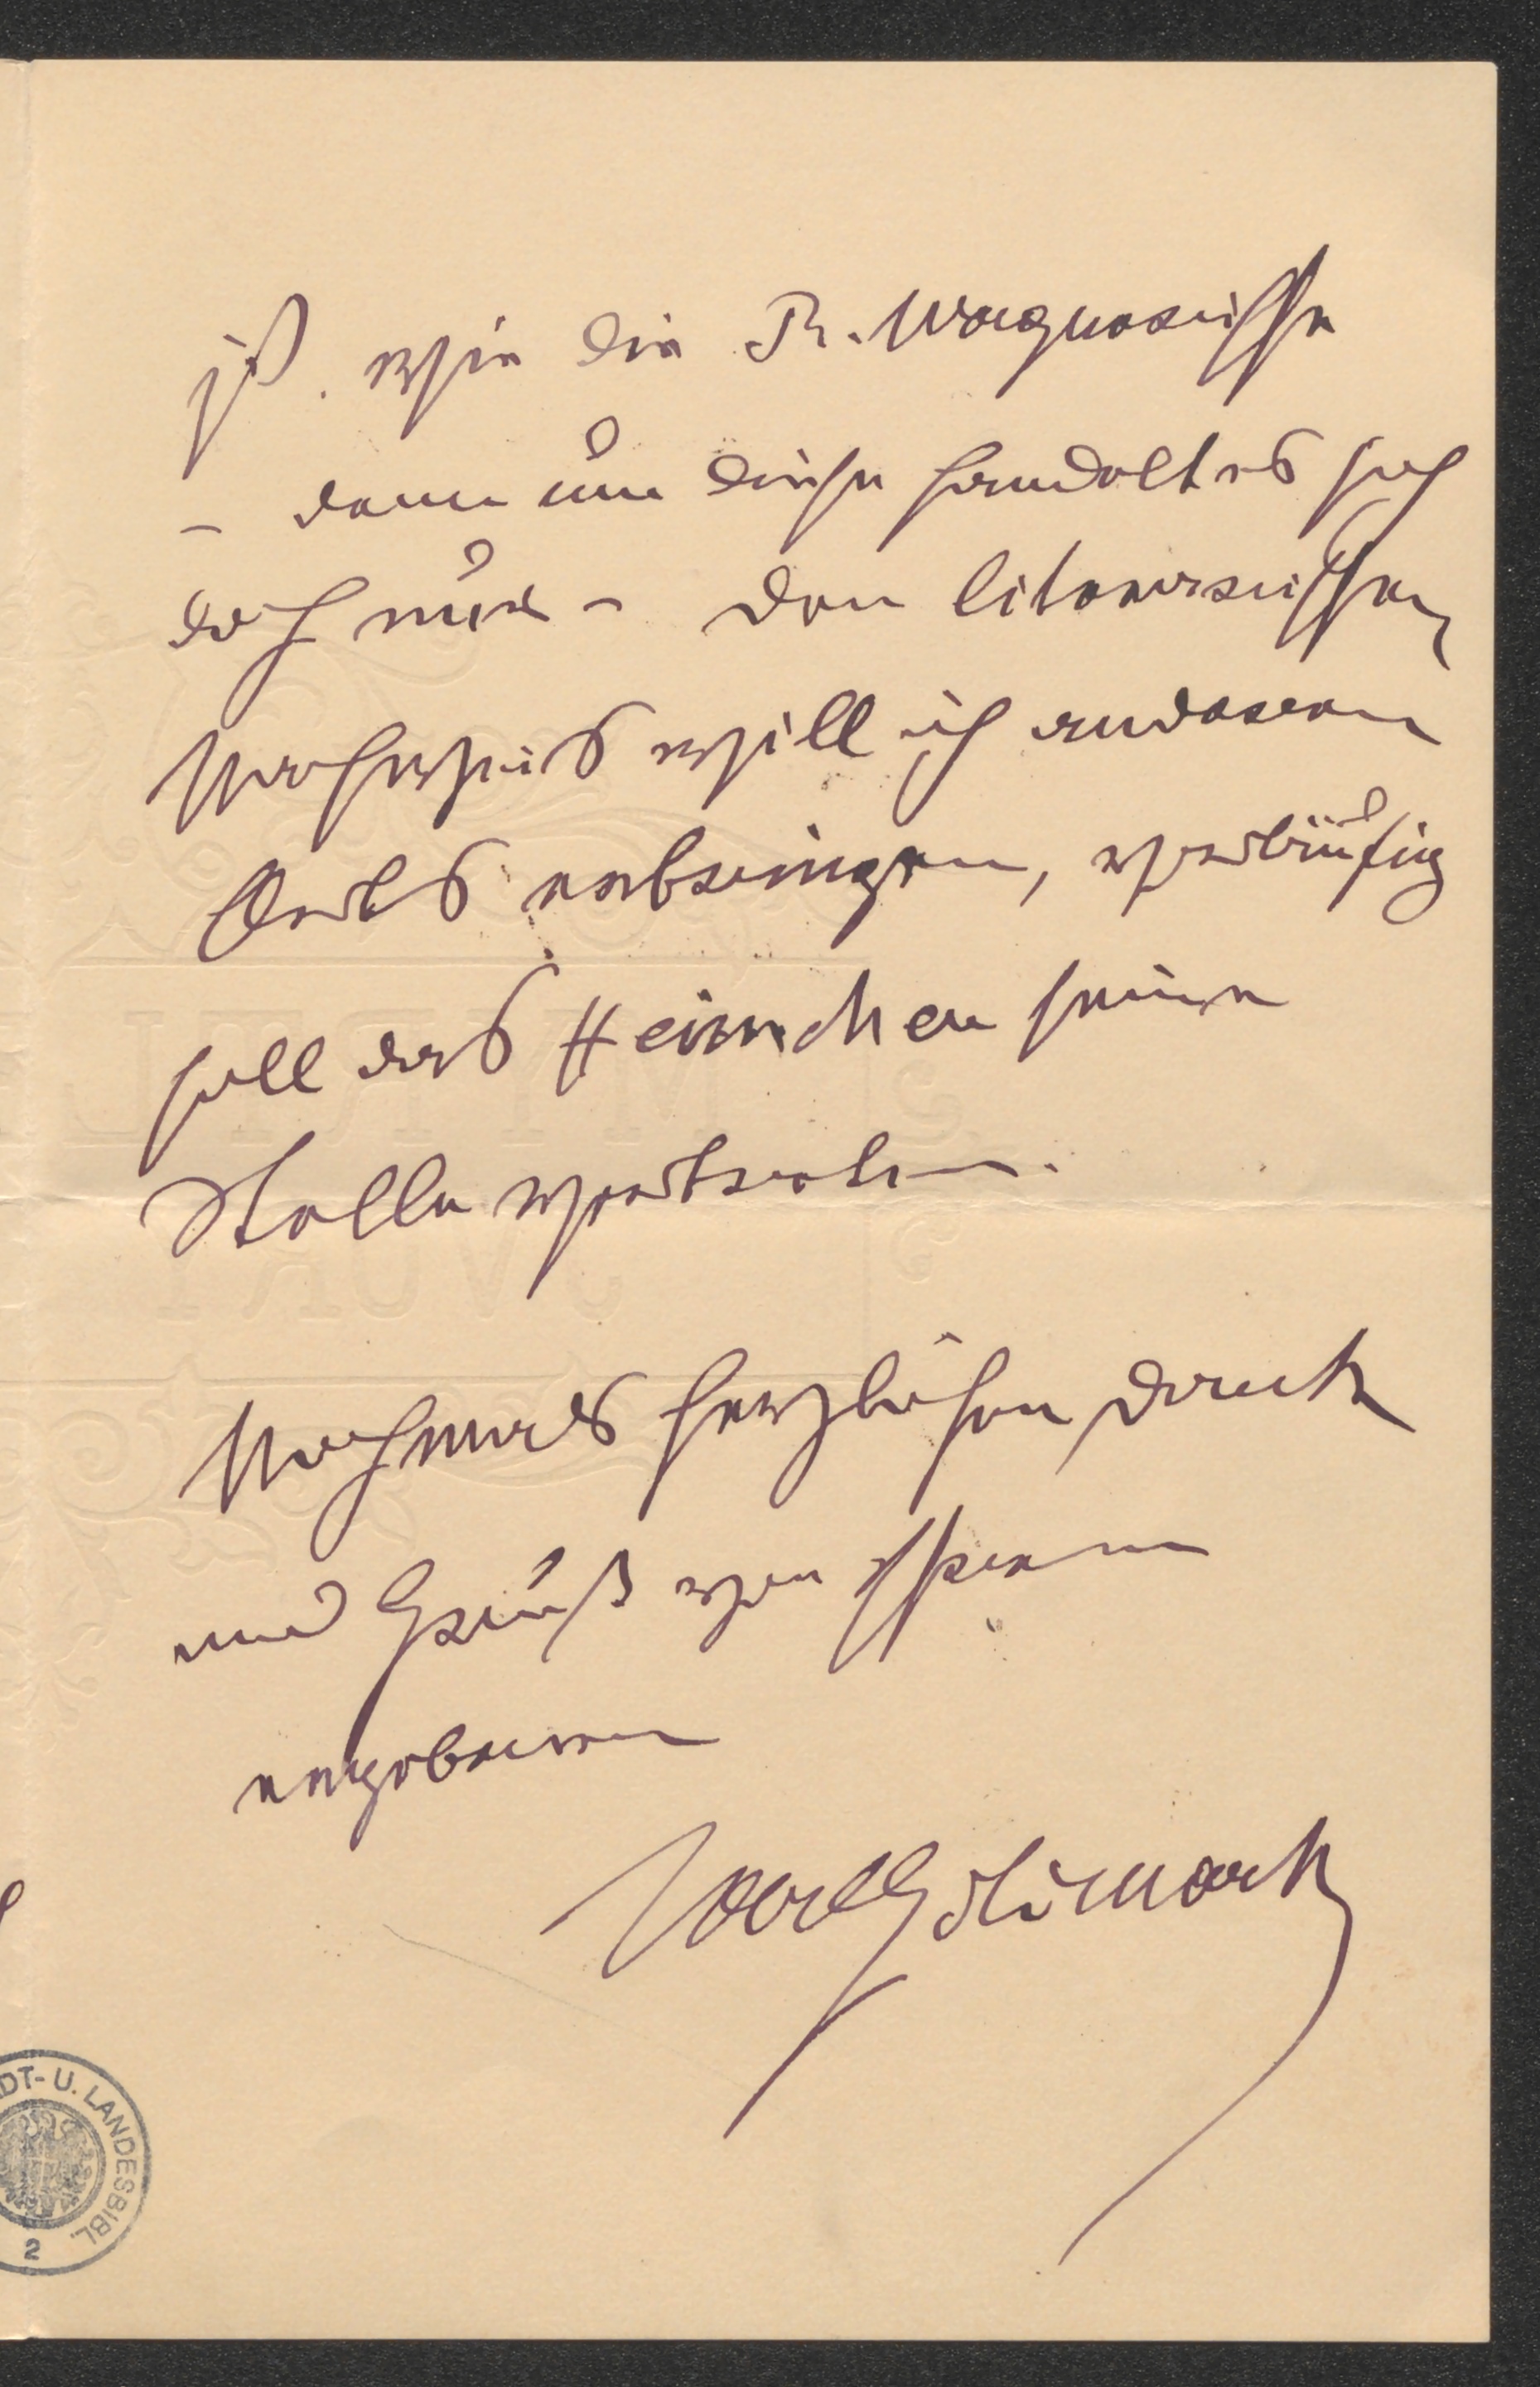 ist. wie die R. Wagnerische
– denn um diese handelt es sich
doch nur – den literarischen
Nachweis will ich anderen
Orts erbringen, vorläufig
soll das Heimchen seine
Stelle vertreten.
Nochmals herzlichen Dank
und Gruß von Ihrem
ergebenen
Karl Goldmark
DT- U. LANDESBIBL.
2